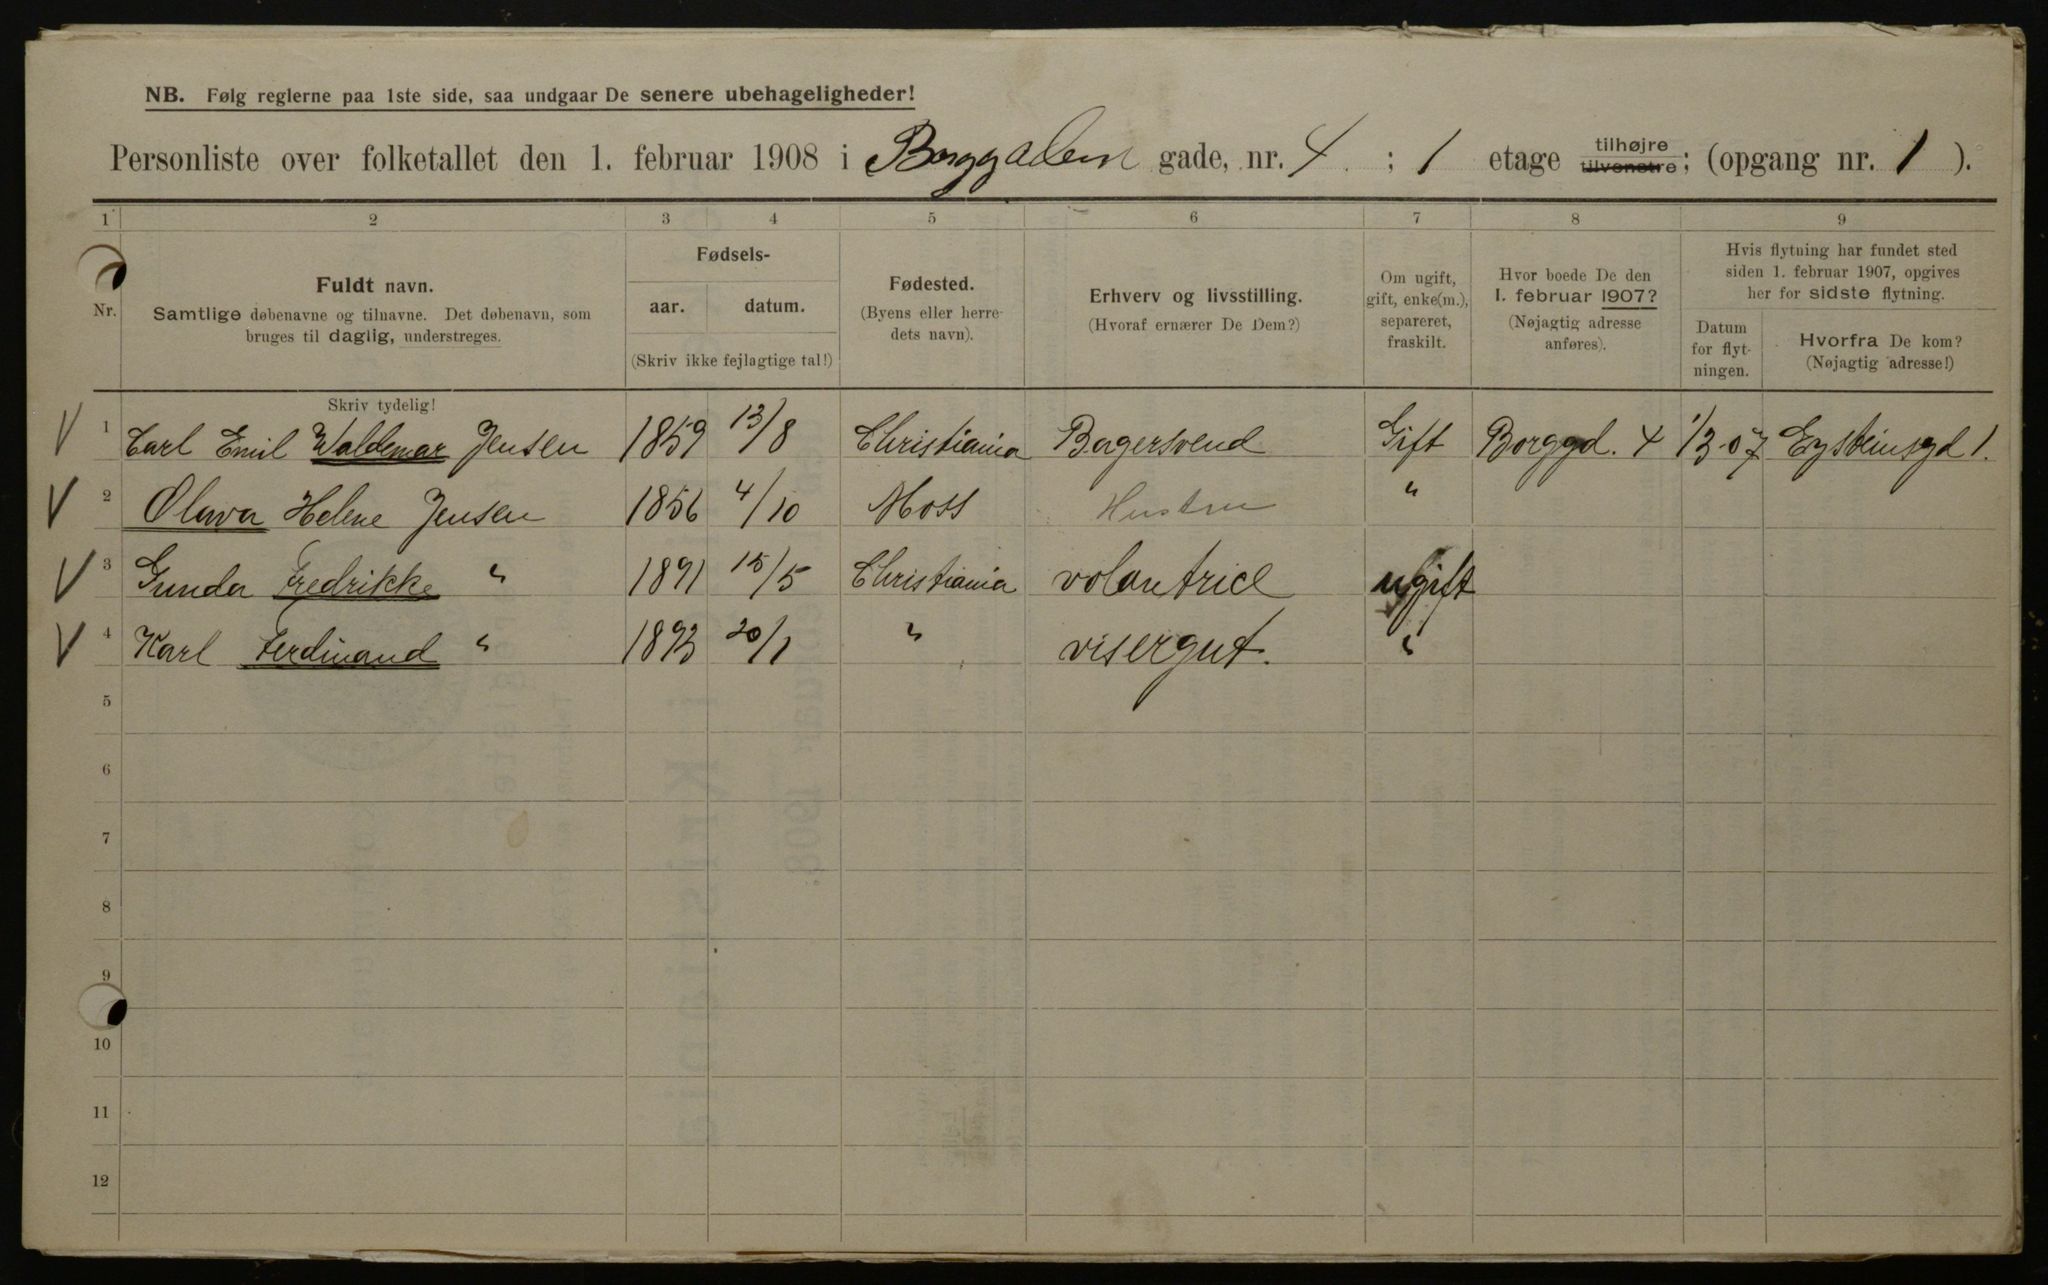 NB. Følg reglerne paa 1ste side, saa undgaar De senere ubehageligheder!
Personliste over folketallet den 1. februar 1908 i Borggaden gade, nr. 4 ; 1 etage tilhøjre tilvenstre; (opgang nr. 1 ).
1 2 3 4 5 6 7 8 9
Nr.
Fuldt navn.
Samtlige døbenavne og tilnavne. Det døbenavn, som
bruges til daglig, understreges.
Fødsels-
aar. datum.
(Skriv ikke fejlagtige tal!)
Fødested.
(Byens eller herre-
dets navn).
Erhverv og livsstilling.
(Hvoraf ernærer De Dem?)
Om ugift,
gift, enke(m.),
separeret,
fraskilt.
Hvor boede De den
1. februar 1907?
(Nøjagtig adresse
anføres).
Hvis flytning har fundet sted
siden 1. februar 1907, opgives
her for sidste flytning.
Datum
for flyt-
ningen.
Hvorfra De kom?
(Nøjagtig adresse!)
Skriv tydelig!
1 Carl Emil Waldemar Jensen 1859 13/8 Christiania Bagersvend Gift Borggd. 4 1/3-07 Eysteinsgd 1.
2 Olava Helene Jensen 1856 4/10 Moss Hustru "
3 Gunda Fredrikke " 1891 15/5 Christiania volontrice ugift
4 Karl Ferdinand " 1893 20/1 " visergut. "
5
6
7
8
9
10
11
12